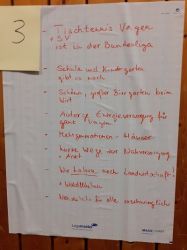 3
Tischtennis Vagen
+ SV
ist in der Bundesliga
- Schule und Kindergarten
gibt es noch
- Schöner, großer Biergarten beim
Wirt
- Autarke Energieversorgung für
ganz Vagen
- Mehrgenerationen-Häuser
- Kurze Wege zur Nahversorgung
+ Arzt
- Wir haben noch Landwirtschaft!
+
für alle erschwinglich
Legamaster